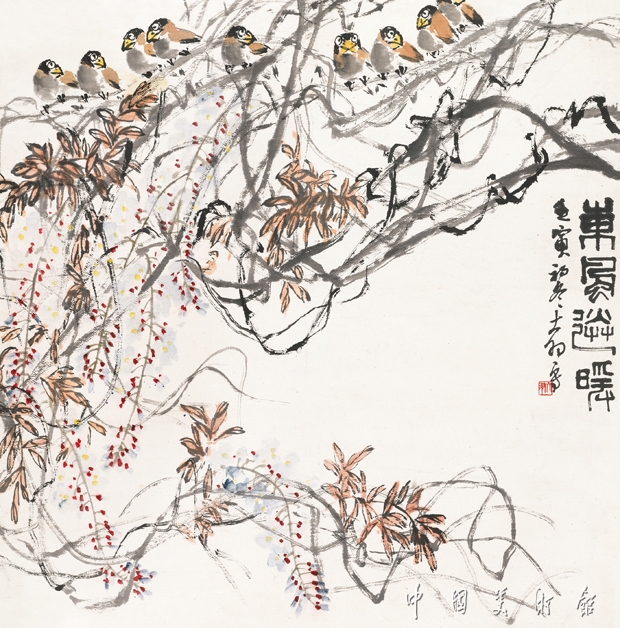 東風送暖
壬寅初冬大羽寫
中國美術館